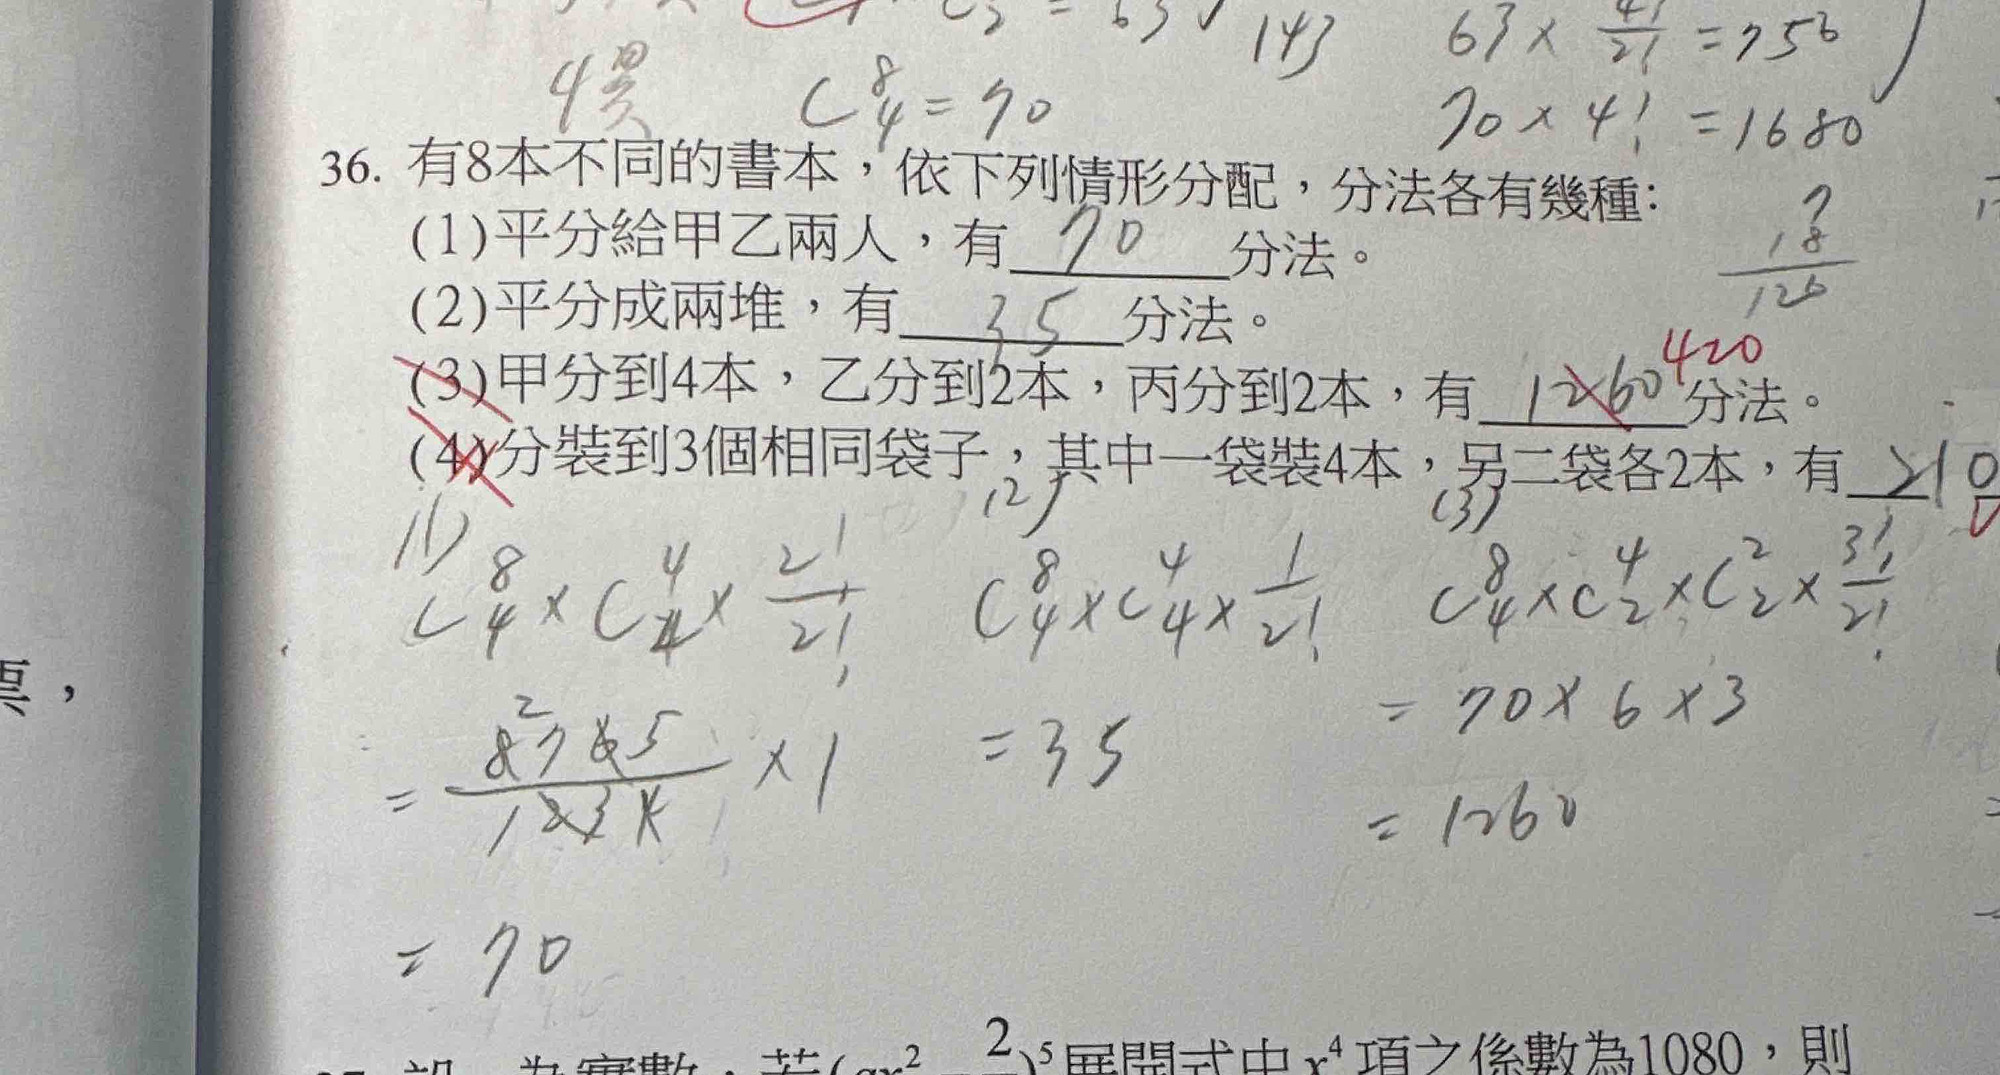 = 63 143 63 × 4!/2! = 756
4異 C⁸₄ = 70 70 × 4! = 1680
36. 有8本不同的書本，依下列情形分配，分法各有幾種：
(1)平分給甲乙兩人，有 70 分法。
7
18
126
(2)平分成兩堆，有 35 分法。
(3)甲分到4本，乙分到2本，丙分到2本，有 1260 420 分法。
(4)分裝到3個相同袋子，其中一袋裝4本，另二袋各2本，有 210
(1) C⁸₄ × C⁴₄ × 2!/2!
= 8765/1234 × 1
= 70
(2) C⁸₄ × C⁴₄ × 1/2!
= 35
(3) C⁸₄ × C⁴₂ × C²₂ × 3!/2!
= 70 × 6 × 3
= 1260
票，
2
)⁵展開式中 x⁴ 項之係數為1080，則